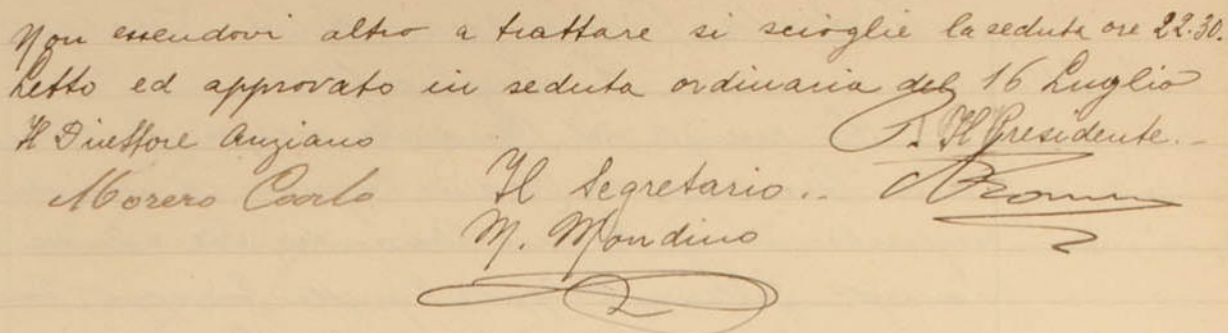 Non essendovi altro a trattare si scioglie la seduta ore 22.30.
Letto ed approvato in seduta ordinaria del 16 Luglio
Il Direttore Anziano
P. Il Presidente.
Morero Carlo
Il Segretario
M. Mondino